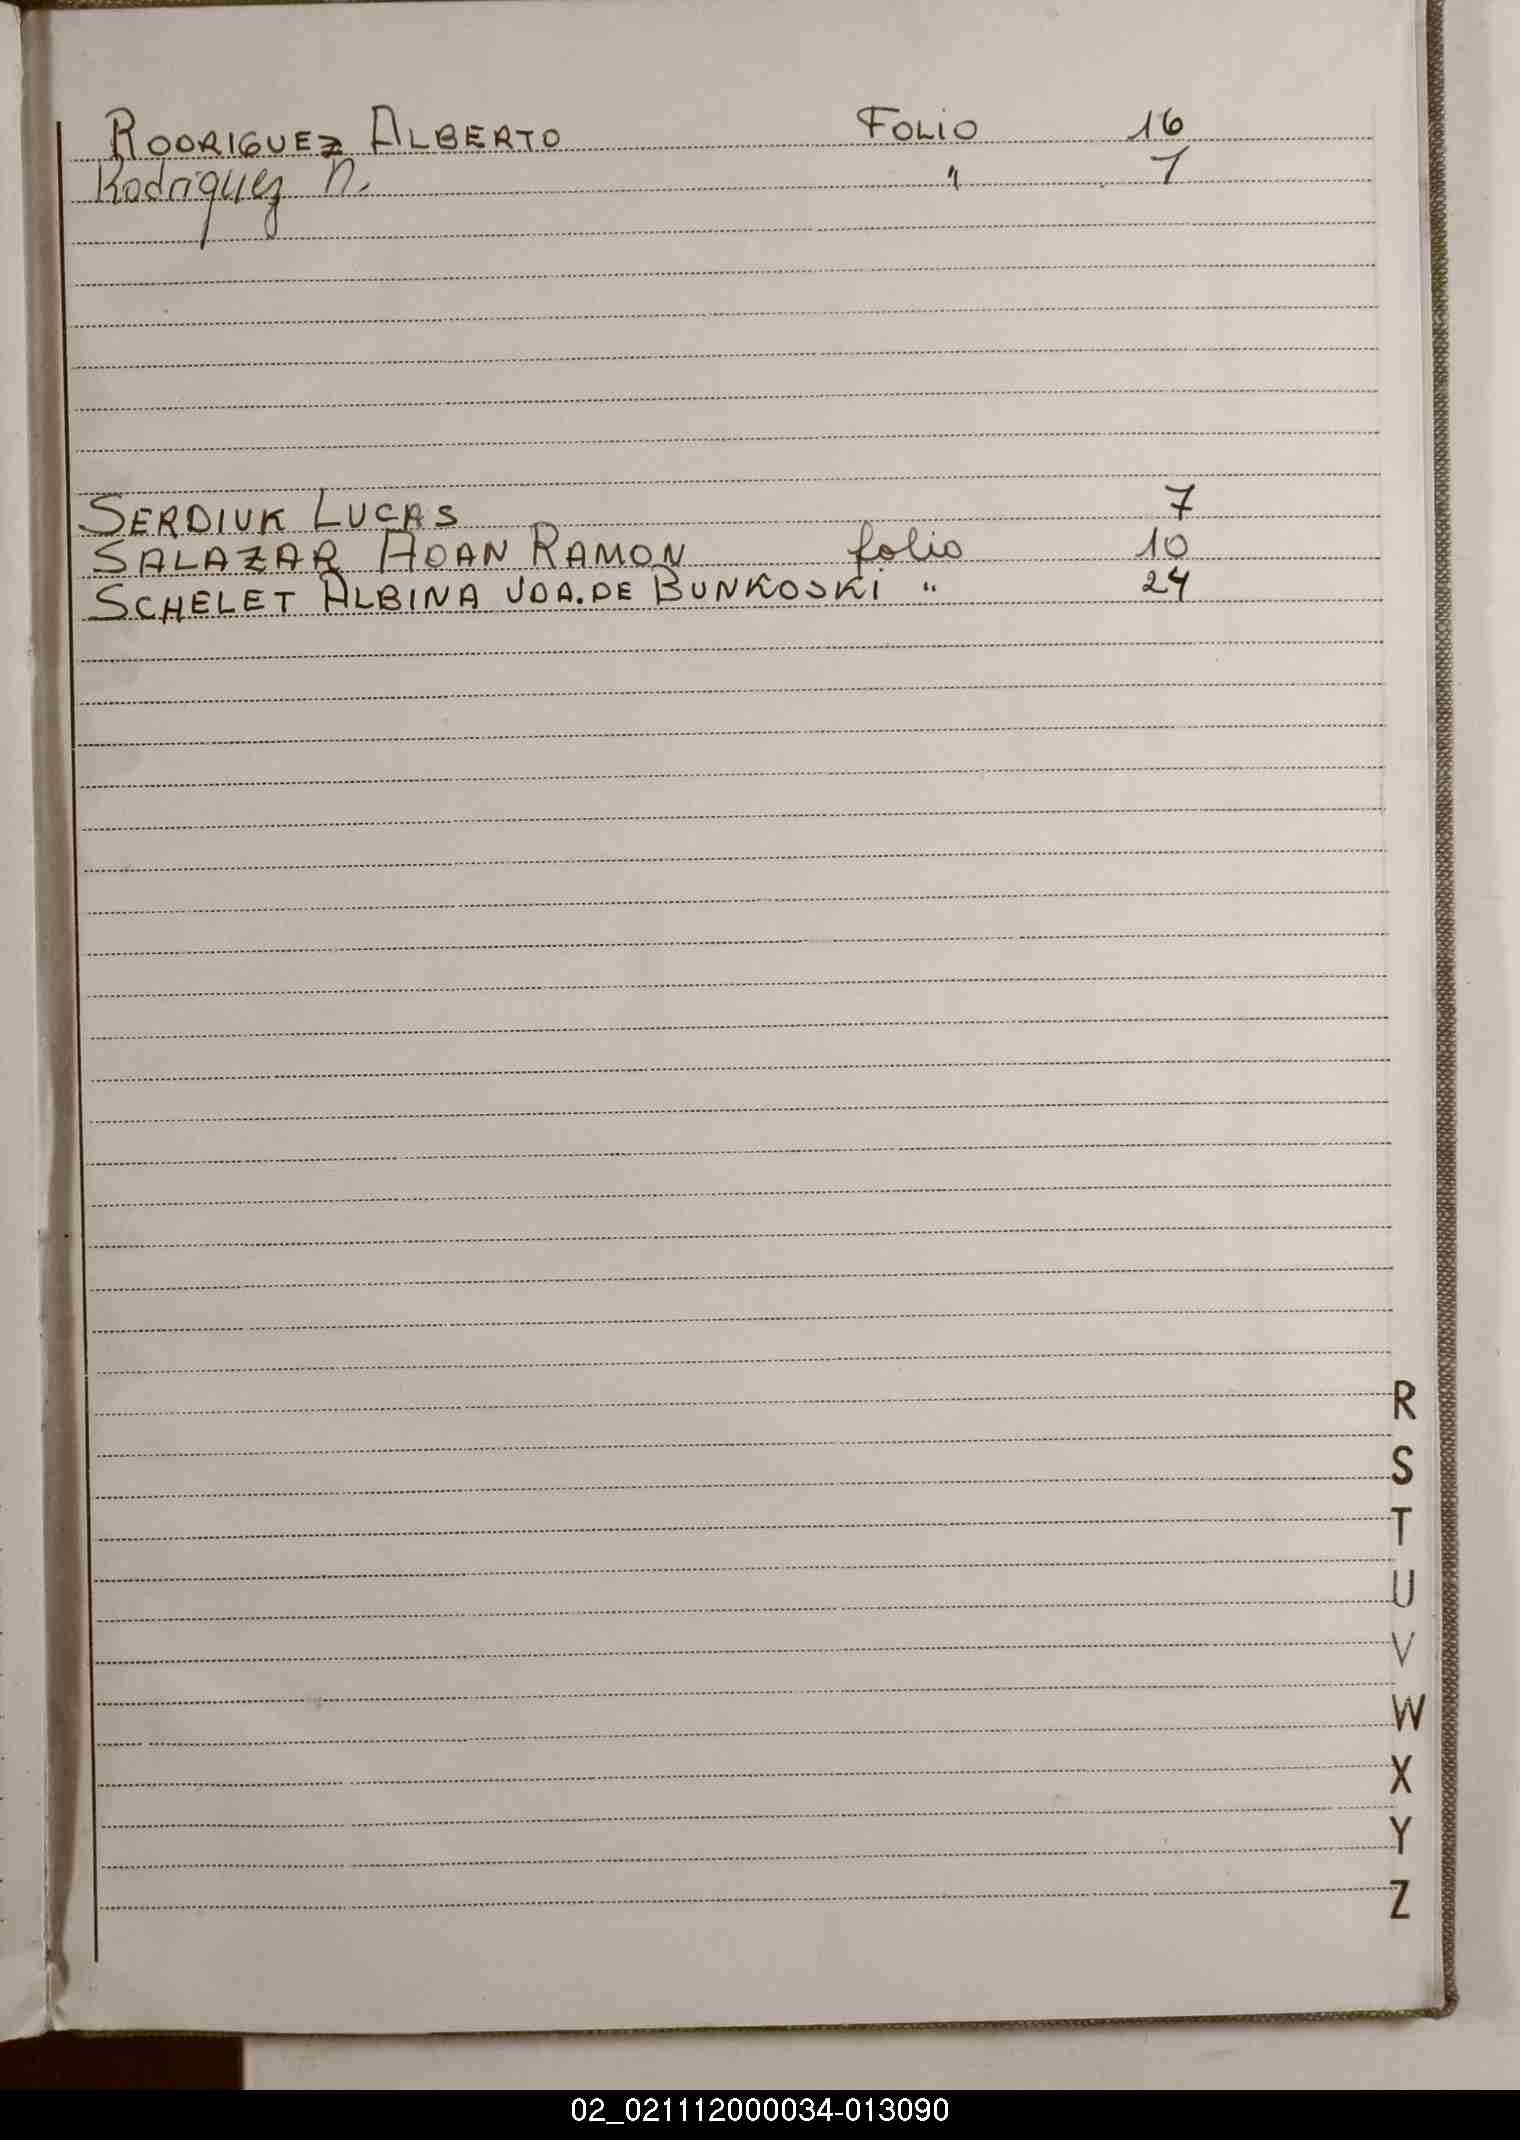 RODRIGUEZ ALBERTO FOLIO 16
Rodriguez N. " 1
SERDIUK LUCAS 7
SALAZAR ADAN RAMON folio 10
SCHELET ALBINA VDA. DE BUNKOSKI " 24
R
S
T
U
V
W
X
Y
Z
02_021112000034-013090